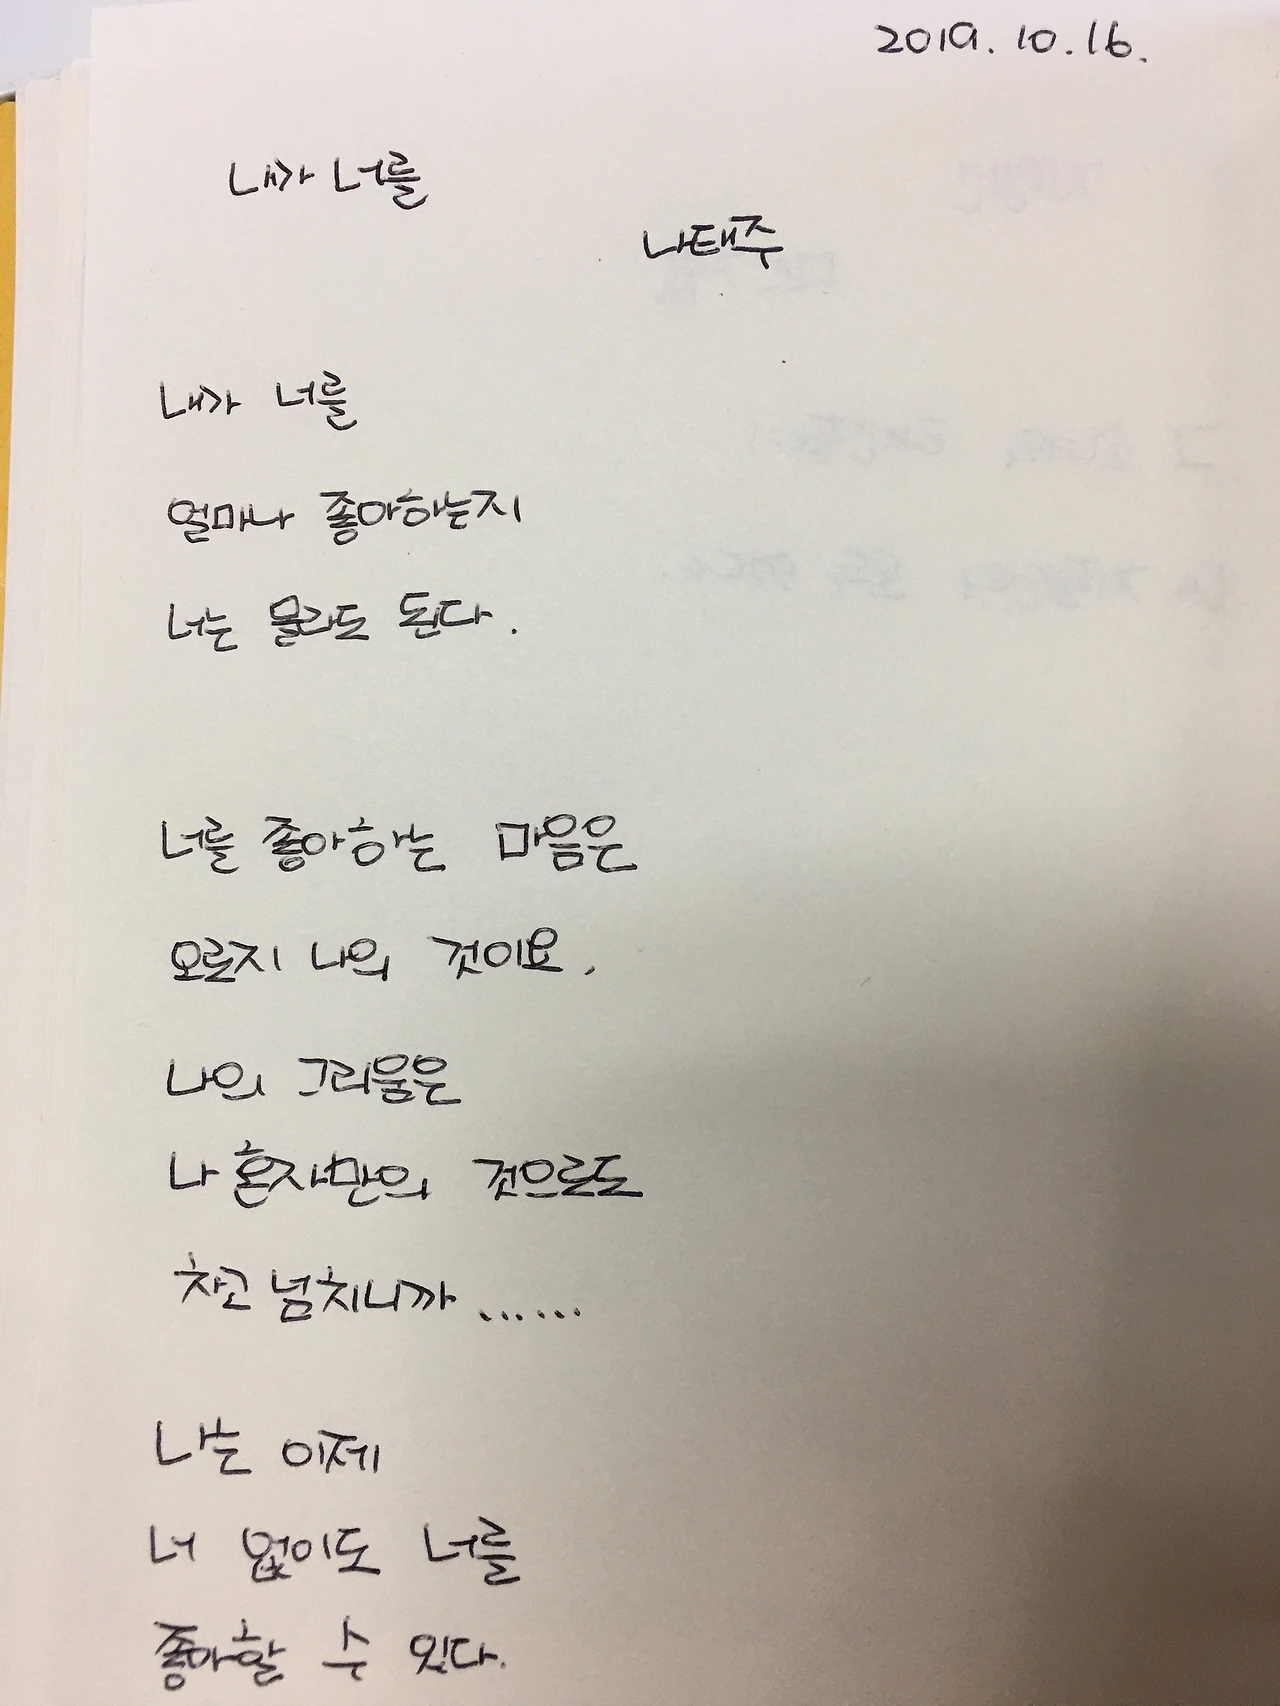 2019. 10. 16.
내가 너를
나태주
내가 너를
얼마나 좋아하는지
너는 몰라도 된다.
너를 좋아하는 마음은
오로지 나의 것이요,
나의 그리움은
나 혼자만의 것으로도
차고 넘치니까......
나는 이제
너 없이도 너를
좋아할 수 있다.